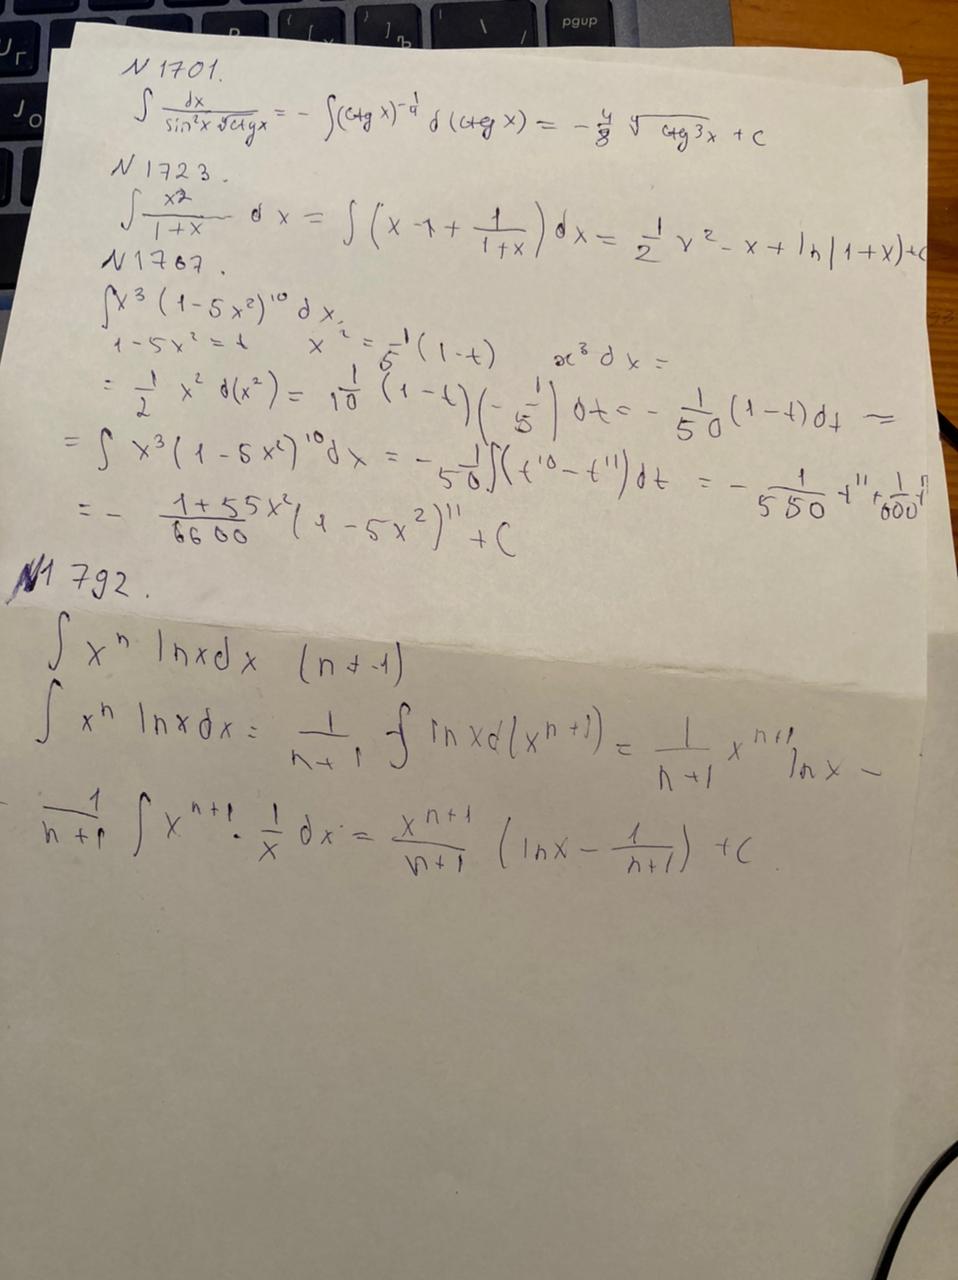 pgup
N 1701.
∫ dx / (sin²x ∜ctgx) = - ∫(ctg x)^(-1/4) d(ctg x) = - 4/8 ∜(ctg³x) + C
N 1723.
∫ x² / (1+x) dx = ∫ (x - 1 + 1/(1+x)) dx = 1/2 x² - x + ln|1+x) + C
N 1767.
∫x³ (1-5x²)¹⁰ dx.
1-5x² = t x² = 1/5 (1-t) x³ dx =
= 1/2 x² d(x²) = 1/10 (1-t)(-1/5) dt = - 1/50 (1-t)dt =
= ∫ x³(1-5x²)¹⁰dx = - 1/50 ∫(t¹⁰ - t¹¹)dt = - 1/550 t¹¹ + 1/600 t
= - (1+55x²)/6600 (1-5x²)¹¹ + C
N1792.
∫ xⁿ lnxdx (n ≠ -1)
∫ xⁿ lnxdx = 1/(n+1) ∫ lnxd(xⁿ⁺¹) = 1/(n+1) xⁿ⁺¹ lnx -
- 1/(n+1) ∫ xⁿ⁺¹ · 1/x dx = xⁿ⁺¹/(n+1) (lnx - 1/(n+1)) + C